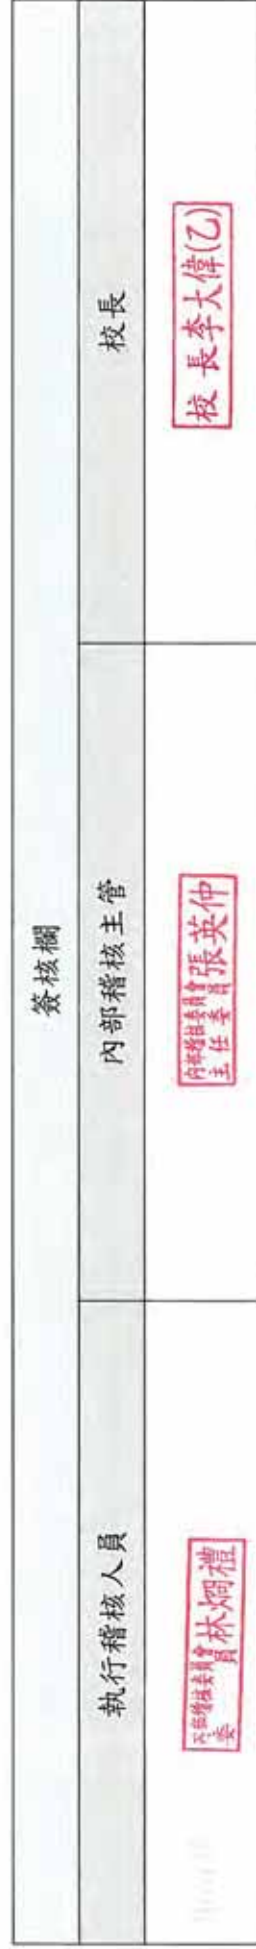 簽核欄
執行稽核人員
內部稽核主管
校長
內部稽核委員會
委員林烱禮
內部稽核委員會
主任委員張英仲
校長李大偉(乙)